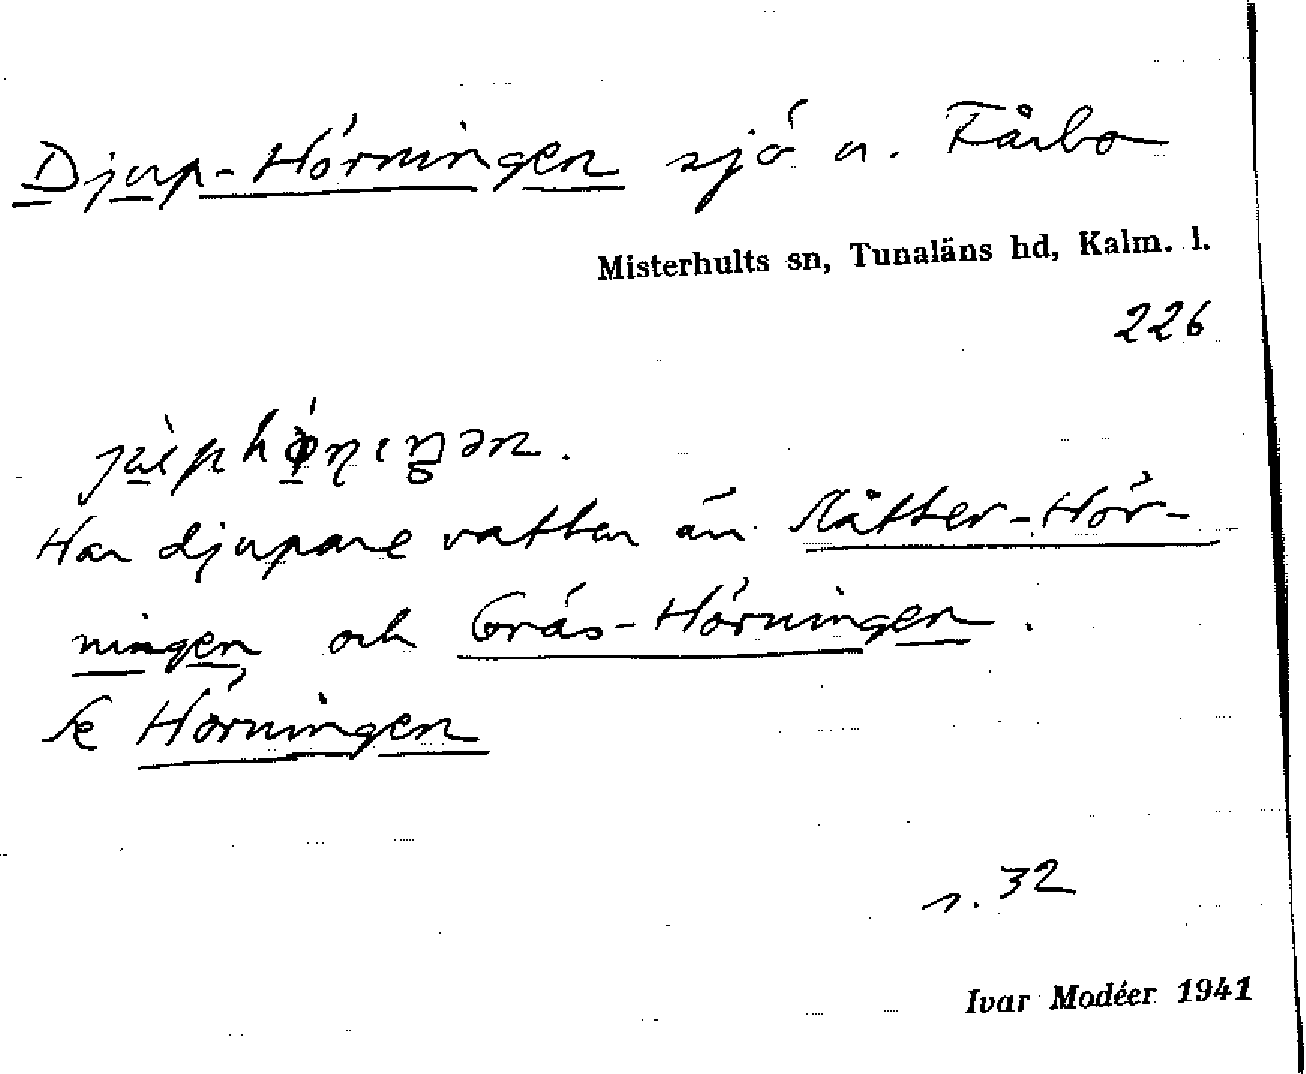 Djup-Hörningen sjö n. Fårbo
Misterhults sn, Tunaläns hd, Kalm. l.
226
Har djupare vatten än Slätter-Hör-
ningen och Gräs-Hörningen.
Se Hörningen
s. 32
Ivar Modéer 1941